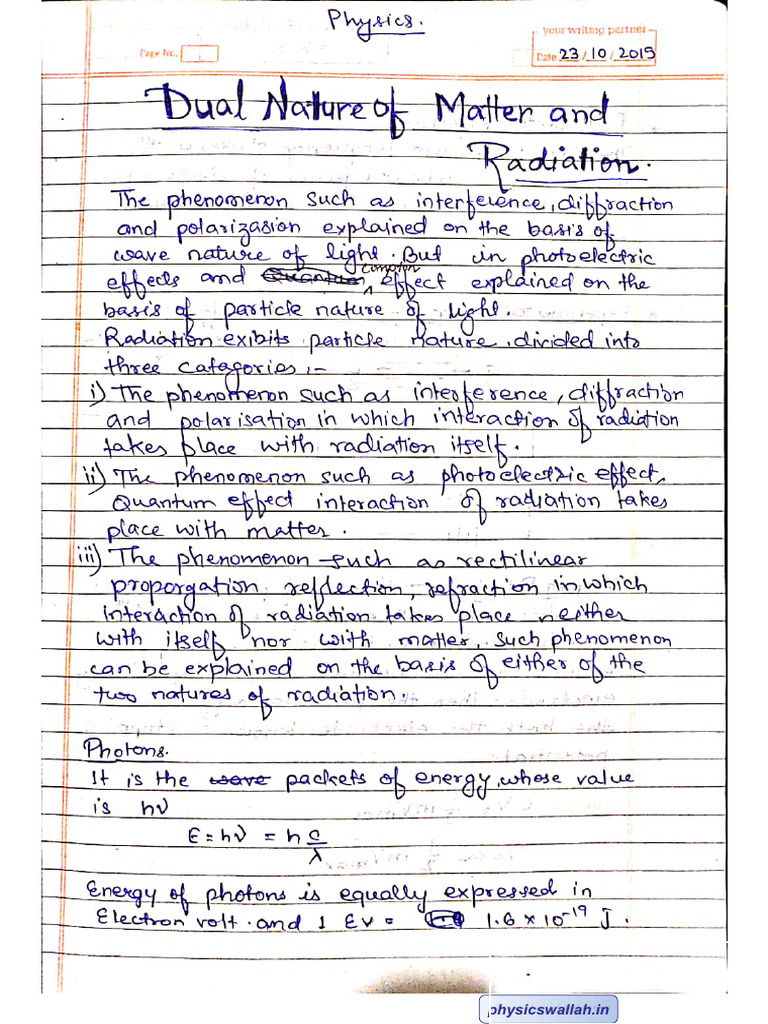 Physics.
your writing partner
Page No.
Date 23/10/2019
Dual Nature of Matter and
Radiation.
The phenomenon such as interference, diffraction
and polarizasion explained on the basis of
wave nature of light. But in photoelectric
compton
effects and Quantum effect explained on the
basis of particle nature of light.
Radiation exibits particle nature, divided into
three catagories,-
i) The phenomenon such as interference, diffraction
and polarisation in which interaction of radiation
takes place with radiation itself.
ii) The phenomenon such as photoelectric effect,
Quantum effect interaction of radiation takes
place with matter.
iii) The phenomenon such as rectilinear
proporgation, reflection, refraction in which
interaction of radiation takes place neither
with itself nor with matter, such phenomenon
can be explained on the basis of either of the
two natures of radiation.
Photons.
It is the wave packets of energy, whose value
is hν
E = hν = h c/λ
Energy of photons is equally expressed in
Electron volt. and 1 EV = 1.6 × 10⁻¹⁹ J.
physicswallah.in